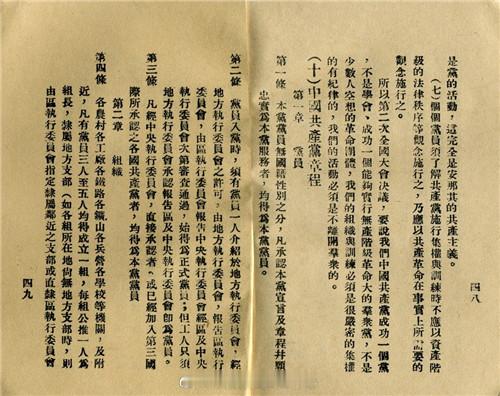 四八
是黨的活動，這完全是安那其的共產主義。
（七）個個黨員須了解共產黨施行集權與訓練時不應以資產階
級的法律秩序等觀念施行之，乃應以共產革命在事實上所需要的
觀念施行之。
所以第二次全國大會決議，要說我們中國共產黨成功一個黨
，不是學會、成功一個能夠實行無產階級革命大的羣衆黨，不是
少數人空想的革命團體，我們的組織與訓練必須是很嚴密的集權
的有紀律的，我們的活動必須是不離開羣衆的。
（十）中國共產黨章程
第一章 黨員
第一條 本黨黨員無國籍性別之分，凡承認本黨宣言及章程幷願
忠實爲本黨服務者，均得爲本黨黨員。
第二條 黨員入黨時，須有黨員一人介紹於地方執行委員會，經
地方執行委員會之許可，由地方執行委員會，報告區執行
委員會，由區執行委員會報告中央執行委員會，經區及中央
執行委員會次第審查通過，始得爲正式黨員；但工人只須
地方執行委員會承認報告區及中央執行委員會卽爲黨員。
第三條 凡經中央執行委員會，直接承認者、或已經加入第三國
際所承認之各國共產黨者，均得爲本黨黨員
第二章 組織
第四條 各農村各工廠各鐵路各鑛山各兵營各學校等機關，及附
近，凡有黨員三人至五人均得成立一組，每組公推一人爲
組長，隸屬地方支部（如各組所在地尙無地方支部時，則
由區執行委員會指定隸屬鄰近之支部或直隸區執行委員會
四九